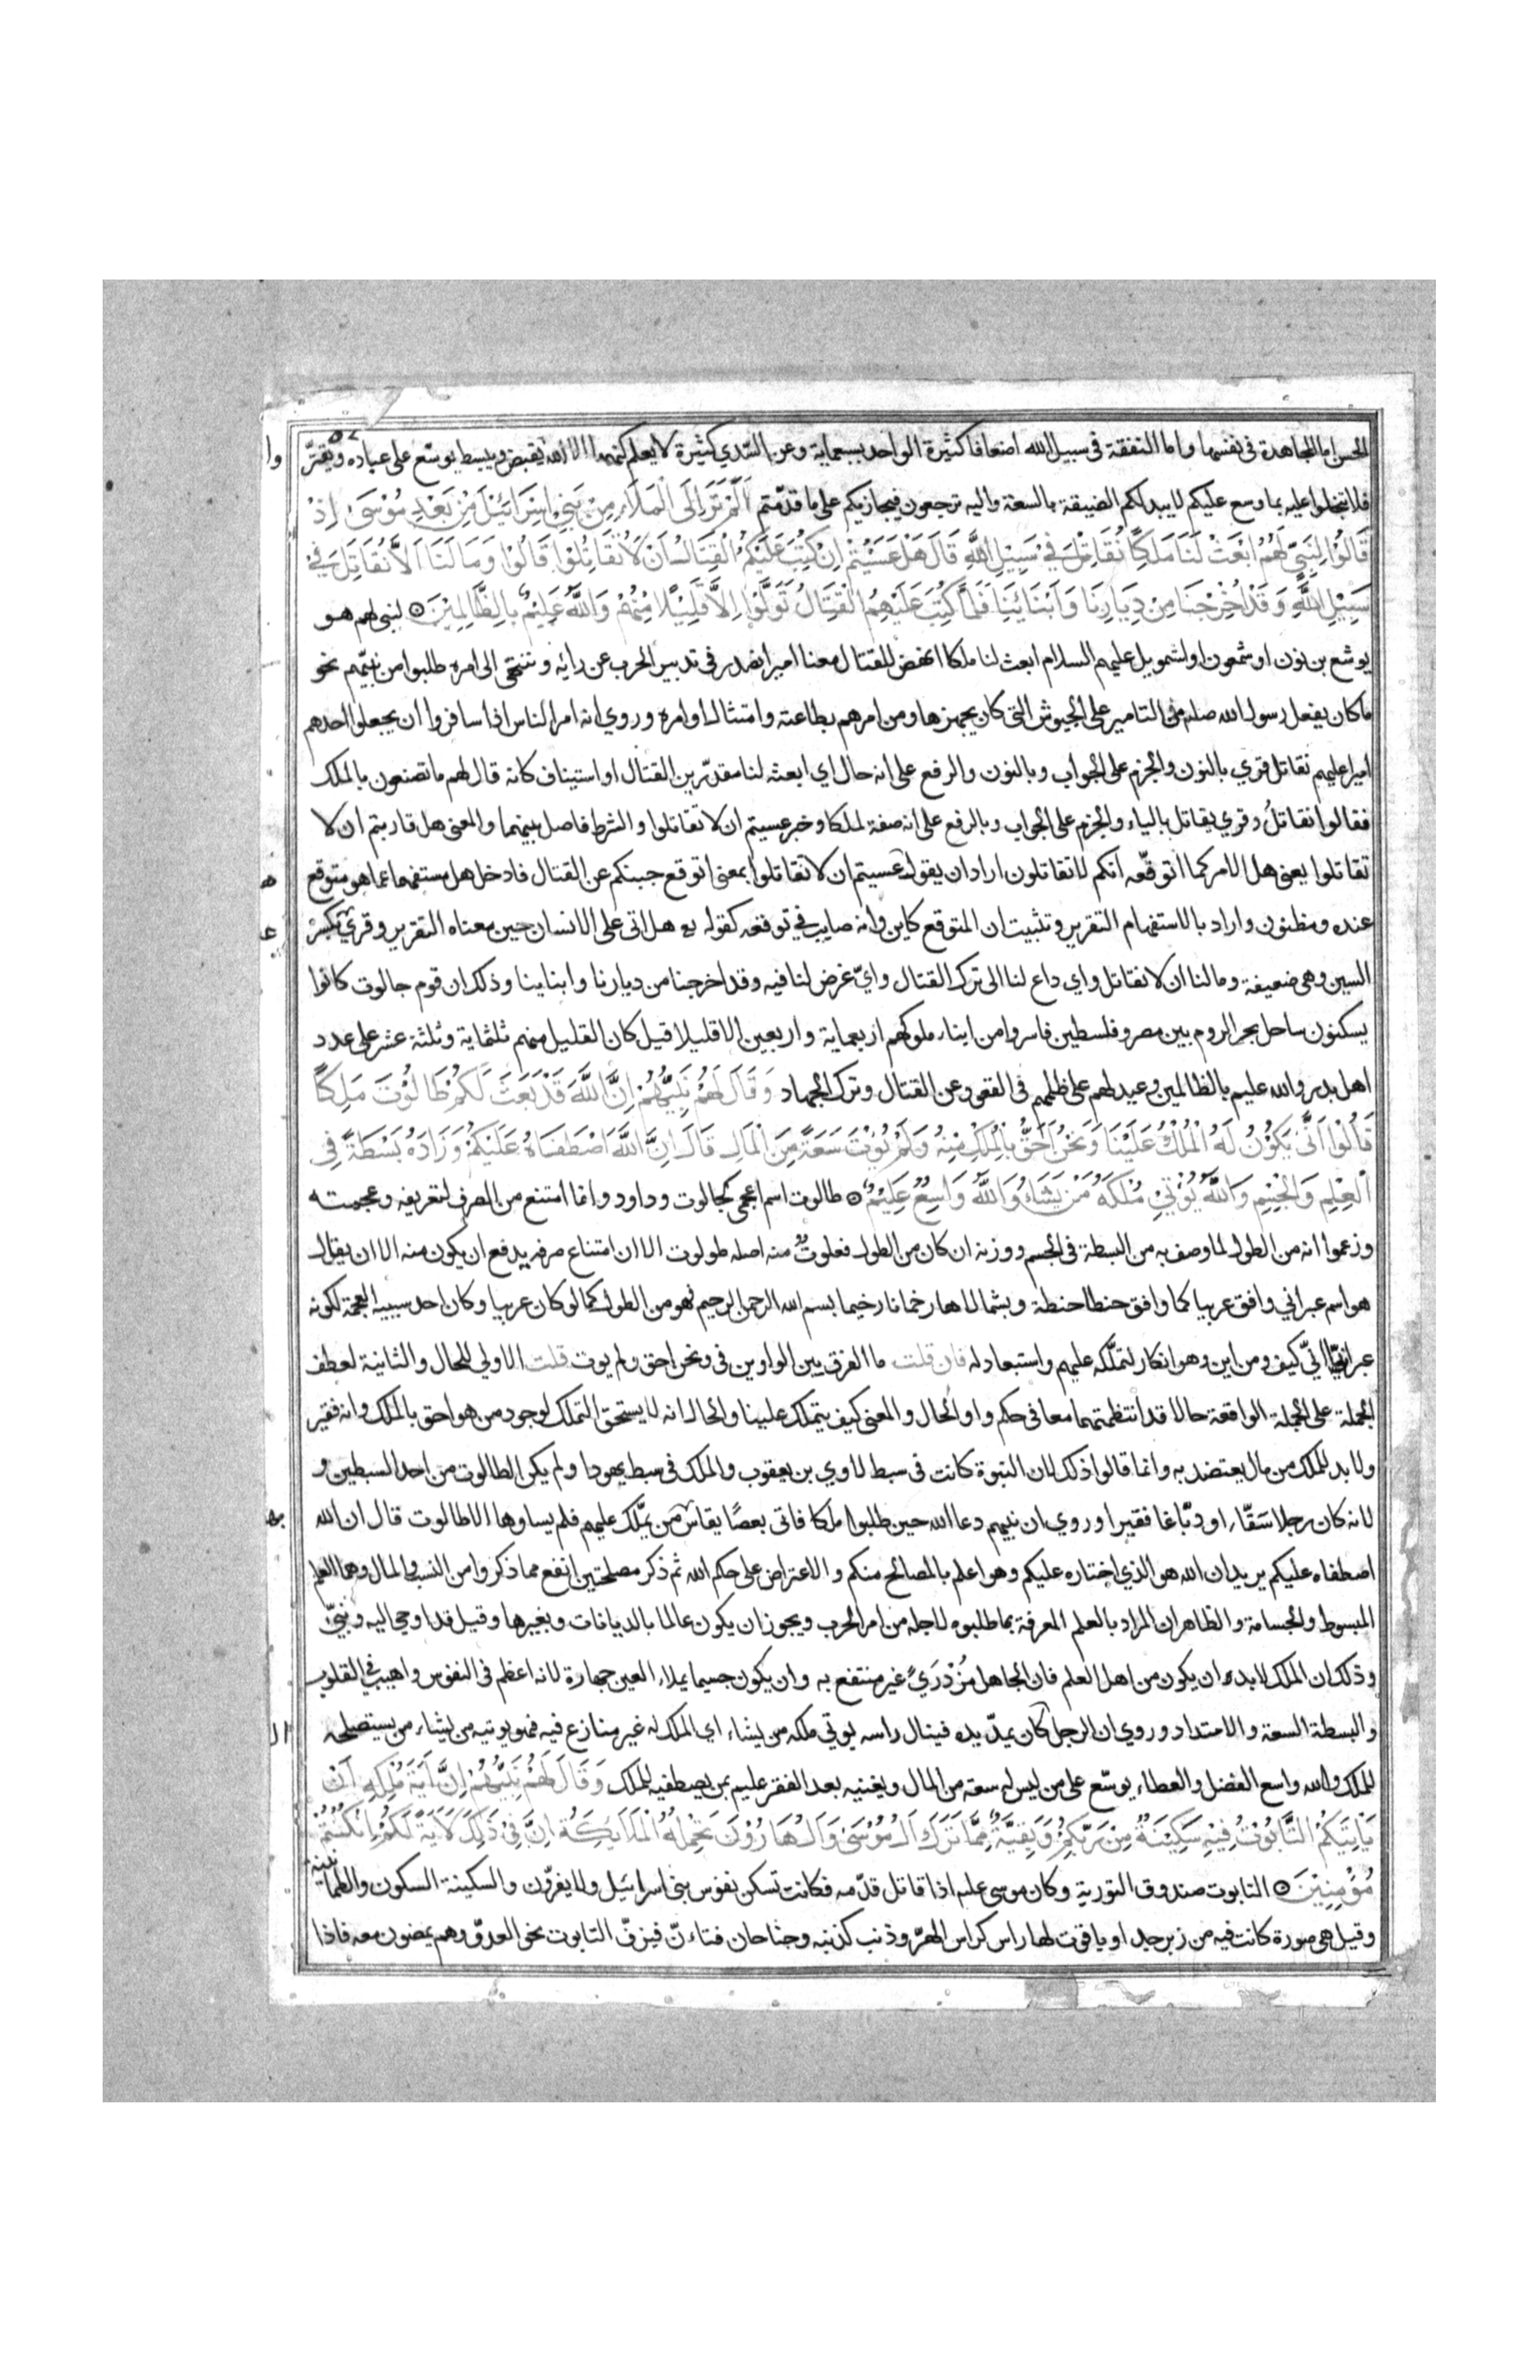 الحسن اما المجاهدة في نفسها واما النفقة في سبيل الله اضعافا كثيرة الواحد بسبعماية وعن السدي كثيرة لا يعلم كنهها الا الله يقبض ويبسط يوسّع على عباده ويقتّر
فلا تبخلوا عليه بما وسع عليكم لا يبدلكم الضيقة بالسعة واليه ترجعون فيجازيكم على ما قدّمتم اَلَمْ تَرَ اِلَى الْمَلَاءِ مِنْ بَنِي اِسْرَائيْلَ مِنْ بَعْدِ مُوْسَى اِذْ
قَالُوْا لِنَبِيٍّ لَهُمُ ابْعَثْ لَنَا مَلِكًا نُقَاتِلْ فِيْ سَبِيْلِ اللّٰهِ قَالَ هَلْ عَسَيْتُمْ اِنْ كُتِبَ عَلَيْكُمُ الْقِتَالُ اَنْ لَا تُقَاتِلُوْا قَالُوْا وَمَا لَنَا اَلَّا نُقَاتِلَ فِيْ
سَبِيْلِ اللّٰهِ وَقَدْ اُخْرِجْنَا مِنْ دِيَارِنَا وَاَبْنَائِنَا فَلَمَّا كُتِبَ عَلَيْهِمُ الْقِتَالُ تَوَلَّوْا اِلَّا قَلِيْلًا مِنْهُمْ وَاللّٰهُ عَلِيْمٌ بِالظَّالِمِيْنَ ۞ لنبي لهم هو
يوشع بن نون او شمعون او اشمويل عليهم السلام ابعث لنا ملكا انهض للقتال معنا اميرا نصدر في تدبير الحرب عن رايه وننتهي الى امره طلبوا من نبيّهم نحو
ما كان يفعل رسول الله صلعم من التامير على الجيوش التي كان يجهزها ومن امرهم بطاعته وامتثال اوامره وروي انه امر الناس اذا سافروا ان يجعلوا احدهم
اميرا عليهم نقاتل قري بالنون والجزم على الجواب وبالنون والرفع على انه حال اي ابعثه لنا مقدّرين القتال او استيناف كانه قال لهم ما تصنعون بالملك
فقالوا نقاتلُ وقري يقاتل بالياء والجزم على الجواب وبالرفع على انه صفة لملكا وخبر عسيتم ان لا تقاتلوا والشرط فاصل بينهما والمعنى هل قاربتم ان لا
تقاتلوا يعني هل الامر كما اتوقّعه انكم لا تقاتلون اراد ان يقول عسيتم ان لا تقاتلوا بمعنى اتوقع جبنكم عن القتال فادخل هل مستفهما عما هو متوقع
عنده ومظنون واراد بالاستفهام التقرير وتثبيت ان المتوقع كاين وانه صايب في توقعه كقوله هل اتى على الانسان حين معناه التقرير وقري بكسر
السين وهي ضعيفة وما لنا ان لا نقاتل واي داع لنا الى ترك القتال وايّ غرض لنا فيه وقد اخرجنا من ديارنا وابناينا وذلك ان قوم جالوت كانوا
يسكنون ساحل بحر الروم بين مصر وفلسطين فاسروا من ابناء ملوكهم اربعماية واربعين الا قليلا قيل كان القليل منهم ثلثماية وثلثة عشر على عدد
اهل بدر والله عليم بالظالمين وعيد لهم على ظلمهم في القعود عن القتال وترك الجهاد وَقَالَ لَهُمْ نَبِيُّهُمْ اِنَّ اللّٰهَ قَدْ بَعَثَ لَكُمْ طَالُوْتَ مَلِكًا
قَالُوْا اَنّٰى يَكُوْنُ لَهُ الْمُلْكُ عَلَيْنَا وَنَحْنُ اَحَقُّ بِالْمُلْكِ مِنْهُ وَلَمْ يُؤْتَ سَعَةً مِنَ الْمَالِ قَالَ اِنَّ اللّٰهَ اصْطَفَاهُ عَلَيْكُمْ وَزَادَهُ بَسْطَةً فِي
الْعِلْمِ وَالْجِسْمِ وَاللّٰهُ يُؤْتِيْ مُلْكَهُ مَنْ يَشَاءُ وَاللّٰهُ وَاسِعٌ عَلِيْمٌ ۞ طالوت اسم اعجمي كجالوت وداود وانما امتنع من الصرف لتعريفه وعجمته
وزعموا انه من الطول لما وصف به من البسطة في الجسم ووزنه ان كان من الطول فعلوت منه اصله طولوت الا ان امتناع صرفه يدفع ان يكون منه الا ان يقال
هو اسم عبراني وافق عربيا كما وافق حنطا حنطة وبشمالا ها رخمانا رخيما بسم الله الرحمن الرحيم فهو من الطول كما لو كان عربيا وكان احد سببيه العجمة لكونه
عبرانيّا انّى كيف ومن اين وهو انكار لتملّكه عليهم واستبعاد له فان قلت ما الفرق بين الواوين في ونحن احق ولم يوت قلت الاولى للحال والثانية لعطف
الجملة على الجملة الواقعة حالا قد انتظمتهما معا في حكم واو الحال والمعنى كيف يتملك علينا والحال انه لا يستحق التملك لوجود من هو احق بالملك وانه فقير
ولا بد للملك من مال يعتضد به وانما قالوا ذلك لان النبوة كانت في سبط لاوي بن يعقوب والملك في سبط يهودا ولم يكن الطالوت من احد السبطين و
لانه كان رجلا سَقّاء او دبّاغا فقيرا وروي ان نبيهم دعا الله حين طلبوا ملكا فاتى بعصًا يقاس من يملّك عليهم فلم يساوها الا طالوت قال ان الله
اصطفاه عليكم يريد ان الله هو الذي اختاره عليكم وهو اعلم بالمصالح منكم والاعتراض على حكم الله ثم ذكر مصلحتين انفع مما ذكروا من النسب والمال وهما العلم
المبسوط والجسامة والظاهر ان المراد بالعلم المعرفة بما طلبوه لاجله من امر الحرب ويجوز ان يكون عالما بالديانات وبغيرها وقيل قد اوحي اليه ونبّيَ
وذلك ان الملك لا بد ان يكون من اهل العلم فان الجاهل مُزْدَرًى غير منتفع به وان يكون جسيما يملاء العين جهارة لانه اعظم في النفوس واهيب في القلوب
والبسطة السعة والامتداد وروي ان الرجل كان يمدّ يده فينال راسه يوتي ملكه من يشاء اي الملك له غير منازع فيه فهو يوتيه من يشاء من يستصلحه
للملك والله واسع الفضل والعطاء يوسّع على من ليس له سعة من المال ويغنيه بعد الفقر عليم بمن يصطفيه للملك وَقَالَ لَهُمْ نَبِيُّهُمْ اِنَّ اٰيَةَ مُلْكِهِ اَنْ
يَاْتِيَكُمُ التَّابُوْتُ فِيْهِ سَكِيْنَةٌ مِنْ رَبِّكُمْ وَبَقِيَّةٌ مِمَّا تَرَكَ اٰلُ مُوْسٰى وَاٰلُ هَارُوْنَ تَحْمِلُهُ الْمَلَايِكَةُ اِنَّ فِيْ ذٰلِكَ لَاٰيَةً لَكُمْ اِنْ كُنْتُمْ
مُؤْمِنِيْنَ ۞ التابوت صندوق التورية وكان موسى علىه اذا قاتل قدّمه فكانت تسكن نفوس بني اسرائيل ولا يفرّون والسكينة السكون والطمانينة
وقيل هي صورة كانت فيه من زبرجد او ياقوت لها راس كراس الهرّ وذنب كذنبه وجناحان فتاءنّ فيزفّ التابوت نحو العدوّ وهم يمضون معه فاذا